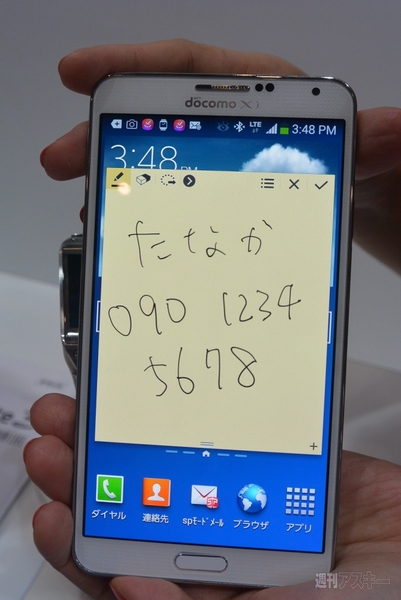 döcomo Xi
LTE 3:48 PM
3:48 PM
たなか
090 1234
5678
ダイヤル 連絡先 spモードメール ブラウザ アプリ
週刊アスキー